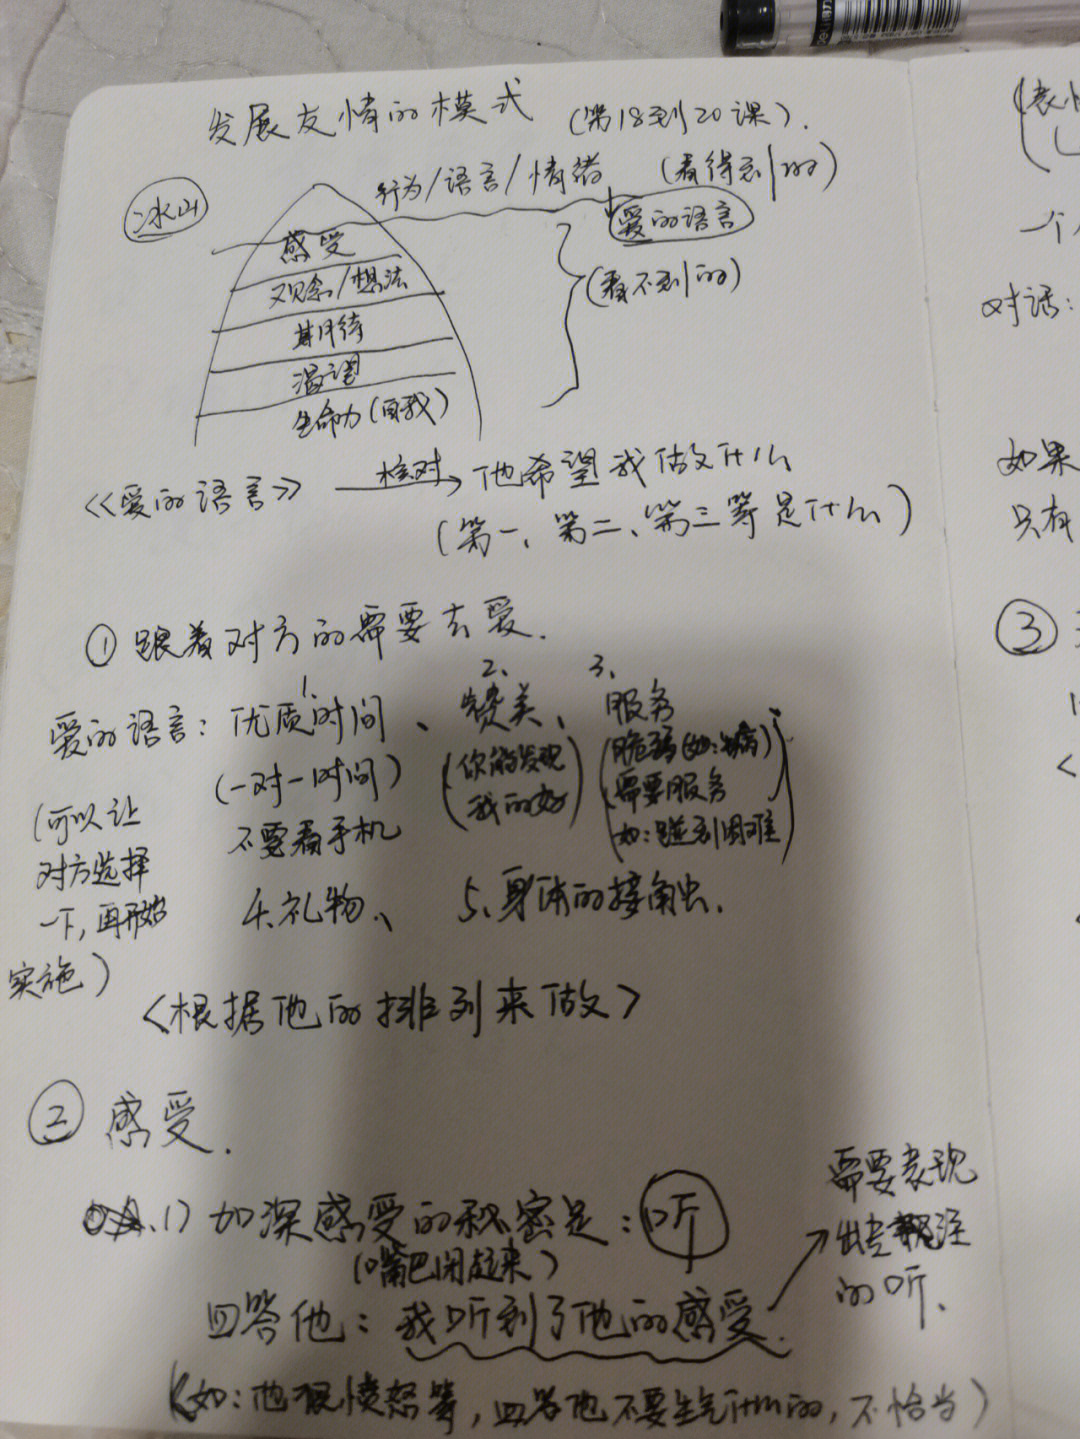 发展友情的模式 (第18到20课).
冰山
行为/语言/情绪 (看得到的)
爱的语言
感受
观念/想法
(看不到的)
期待
渴望
生命力(自我)
《爱的语言》 核对 他希望我做什么
(第一、第二、第三等是什么)
① 跟着对方的需要去爱.
爱的语言: 1. 优质时间、 2. 赞美、 3. 服务
(一对一时间)
不要看手机
(你能发现
我的好)
(脆弱(如:生病)
需要服务
如:碰到困难)
(可以让
对方选择
一下,再开始
实施)
4.礼物、 5、身体的接触.
<根据他的排列来做>
② 感受.
1) 加深感受的秘密是: 听
(嘴巴闭起来)
需要表现
出专注
的听.
回答他: 我听到了他的感受.
(如:他很愤怒等,回答他不要生气什么的,不恰当)
(表
一个
对话:
如果
只有
③